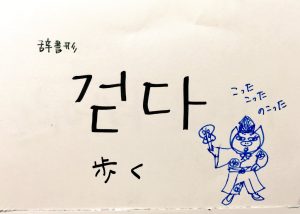 辞書形
걷다
歩く
こった
こった
のこった